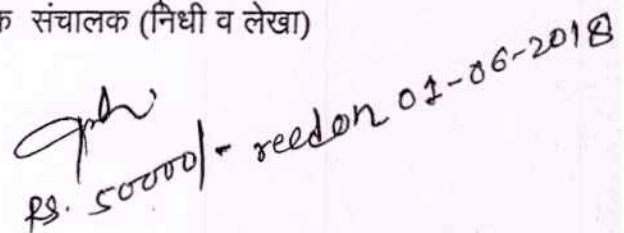 संचालक (निधी व लेखा)
Rs. 50000/- recd on 01-06-2018